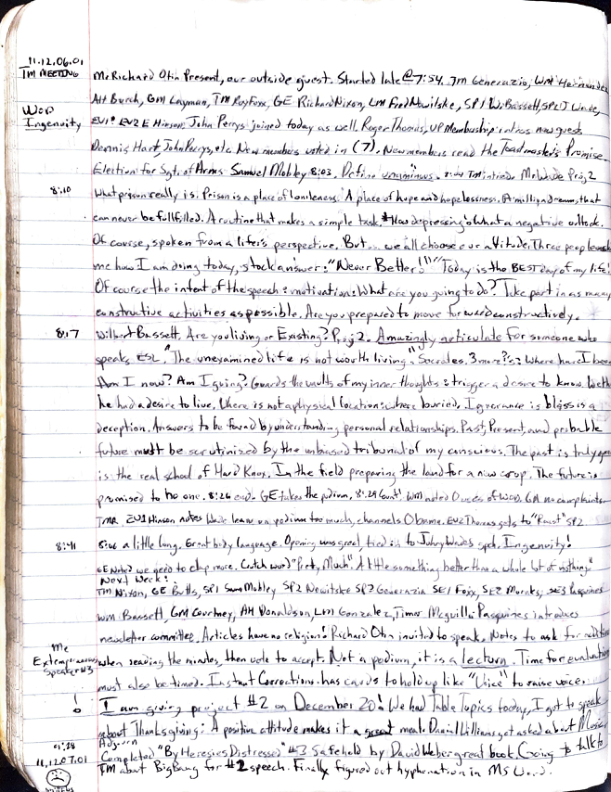 11.12.06.01
TM MEETING
Mr Richard Otin Present, our outside guest. Started late @ 7:54. TM Generazio, WM Hernandez
WOD
Ingenuity
AH Burch, GM Layman, TM Ray Foxx, GE Richard Nixon, LM Fred Newitske, SP1 W. Bassett, SP2 J Wade,
EV1: EV2 E Hinson, John Perrys joined today as well. Roger Thomas, VP Membership, new guest
Dennis Hart, John Perrys, etc. New members voted in (7). New members read the Toastmaster's Promise
Election for Sgt. of Arms - Samuel Mobley 8:03. Define unanimous. Proj 2
8:10
What prison really is: Prison is a place of loneliness. A place of hope and hopelessness. A million dreams, that
can never be fulfilled. A routine that makes a simple task. How depressing & what a negative outlook.
Of course, spoken from a lifer's perspective. But... we all choose our attitude. Three people
me how I am doing today, stock answer: "Never Better!!!" "Today is the BEST day of my life!
Of course the intent of the speech: motivation: What are you going to do? Take part in as many
constructive activities as possible. Are you prepared to move forward constructively.
8:17
Wilbert Bassett, Are you living or Existing? Proj 2. Amazingly articulate for someone who
speaks ESL. The unexamined life is not worth living. "Socrates. 3 more ?'s: Where have I been
Am I now? Am I going? Guards the vaults of my inner thoughts: trigger a desire to know.
he had a desire to live. Where is not a physical location: where buried. Ignorance is bliss is a
deception. Answers to be found by understanding personal relationships. Past, Present, and probable
future must be scrutinized by the unbiased tribunal of my conscious. The past is truly
is the real school of Hard Knox. In the field preparing the land for a new crop. The future is
promised to no one. 8:26 end. GE takes the podium. 8:29 Count! WM noted 0 uses of WOD. GM no complaints
TMR. EV1 Hinson notes Wade leans on podium too much, channels Obama. EV2 Thomas gets to "Roast" SP2
8:41
a little long. Great body language. Opening was great tied in to Johnny Wades spch. Ingenuity!
GE Noted we need to clap more. Catch word "Pretty Much." A little something better than a whole lot of nothing."
Next Week:
TM Nixon, GE Butts, SP1 Sam Mobley SP2 Newitske SP3 Generazio SE1 Foxx, SE2 Monsky, SE3 Pasquines
WM Bassett, GM Courtney, AH Donaldson, LM Gonzalez, Timer Mcguill. Pasquines introduces
newsletter committee. Articles have no religion! Richard Otin invited to speak. Notes to ask for additions
Me
Extemporaneous
Speaker #3
when reading the minutes, then vote to accept. Not a podium, it is a lecturn. Time for evaluation
must also be timed. Instant Corrections. has cards to hold up like "Voice" to raise voice.
!
I am giving project #2 on December 20! We had Table Topics today, I got to speak
about Thanksgiving: A positive attitude makes it a great meal. Daniel Williams got asked about Music
Adjourn
11.12.07.01
Completed "By Heresies Distressed" #3 Safehold by David Weber great book. Going to talk to
TM about Big Bang for #2 speech. Finally figured out hyphenation in MS Word.